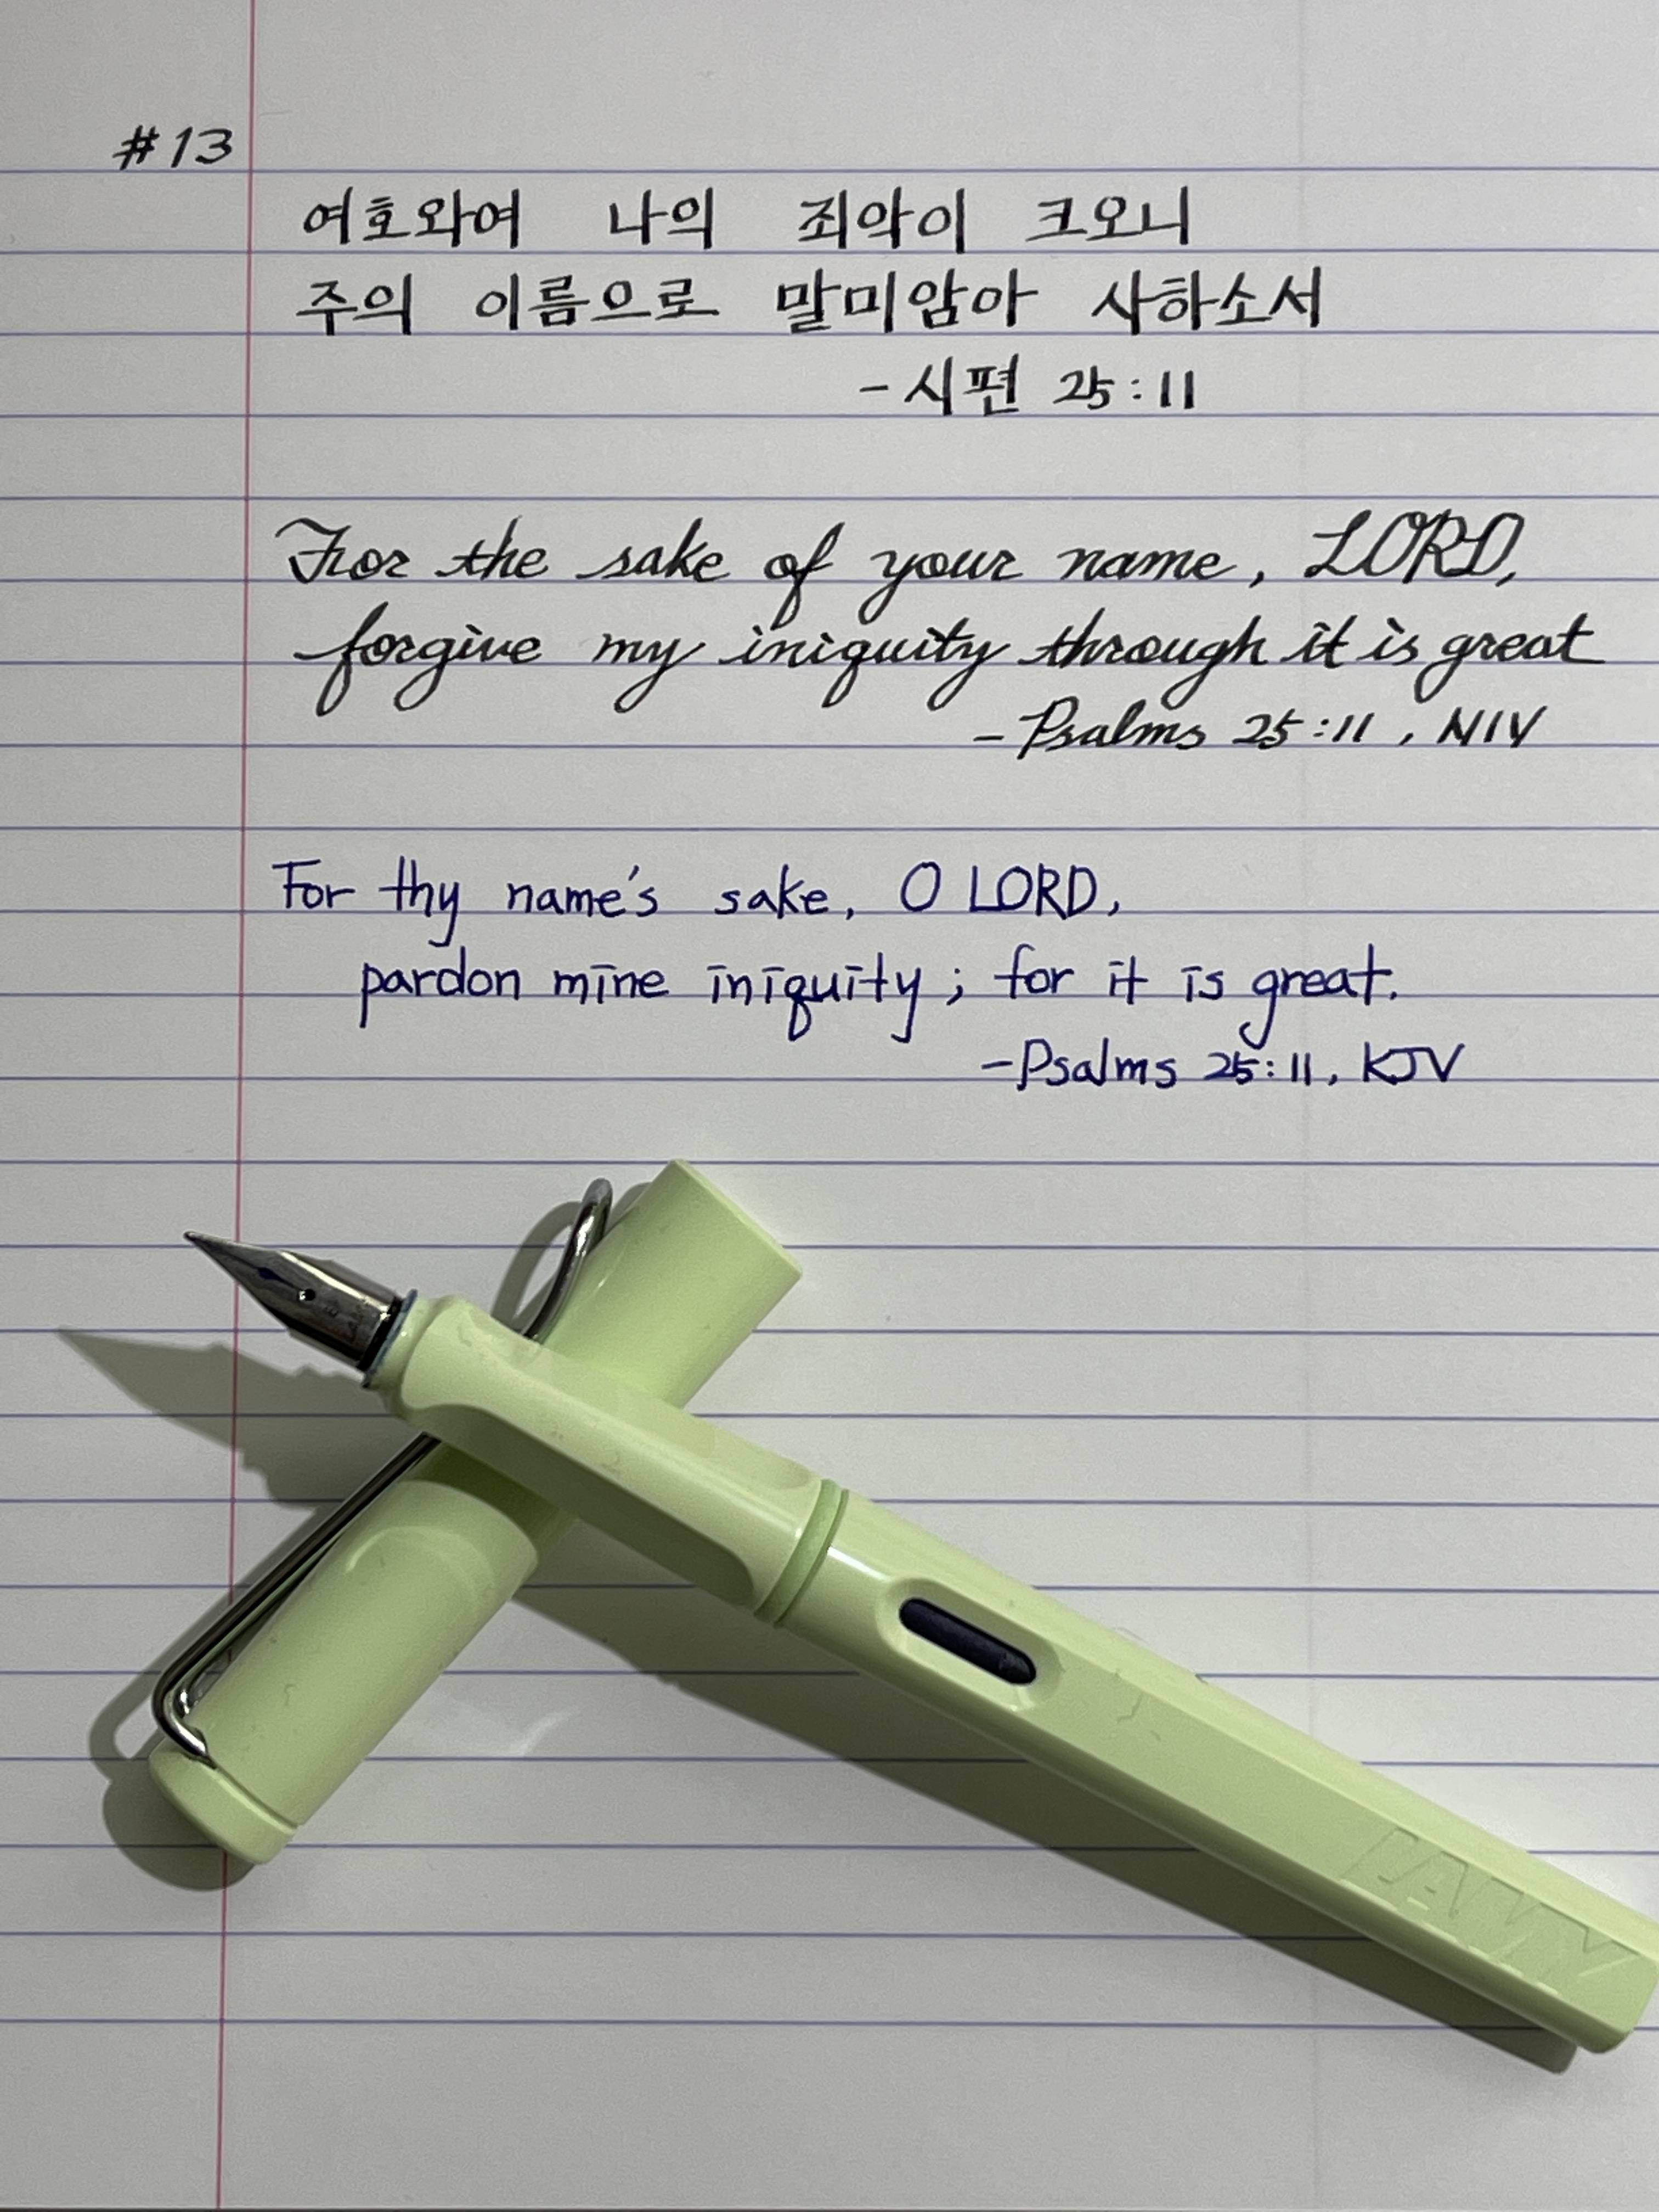 #13
여호와여 나의 죄악이 크오니
주의 이름으로 말미암아 사하소서
- 시편 25:11
For the sake of your name, LORD,
forgive my iniquity through it is great
- Psalms 25:11, NIV
For thy name's sake, O LORD,
pardon mine iniquity; for it is great.
- Psalms 25:11, KJV
LAMY